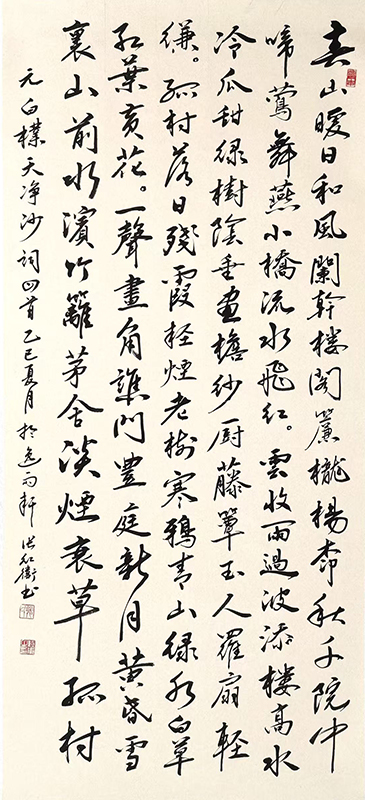 春山暖日和風闌幹楼閣簾櫳楊柳秋千院中
啼鶯舞燕小橋流水飛紅。雲收雨過波添楼高水
冷瓜甜緑樹陰垂畫檐紗厨藤簟玉人羅扇輕
縑。孤村落日殘霞輕煙老樹寒鴉青山緑水白草
紅葉黄花。一聲畫角譙門豊庭新月黄昏雪
裏山前水濱竹籬茅舍淡煙衰草孤村
元白樸天净沙詞四首乙巳夏月於逸雨軒書